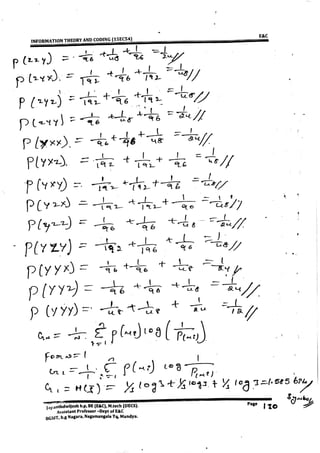 INFORMATION THEORY AND CODING (15EC54) E&C
P(zzy) = 1/96 + 1/48 + 1/96 = 1/24//
P(zyx) = 1/192 + 1/96 + 1/192 = 1/48//
P(zyz) = 1/192 + 1/96 + 1/192 = 1/48//
P(zyy) = 1/96 + 1/48 + 1/96 = 1/24//
P(yxx) = 1/96 + 1/96 + 1/48 = 1/24//
P(yxz) = 1/192 + 1/192 + 1/96 = 1/48//
P(yxy) = 1/192 + 1/192 + 1/96 = 1/48//
P(yzx) = 1/192 + 1/192 + 1/96 = 1/48//
P(yzz) = 1/96 + 1/96 + 1/48 = 1/24//
P(yzy) = 1/192 + 1/196 + 1/96 = 1/48//
P(yyx) = 1/96 + 1/96 + 1/48 = 1/24//
P(yyz) = 1/96 + 1/96 + 1/48 = 1/24//
P(yyy) = 1/48 + 1/48 + 1/24 = 1/12//
G_N = 1/N Σ P(m_i) log (1/P(m_i))
For N = 1
G_1 = 1/1 Σ P(m_i) log 1/P(m_i)
G_1 = H(X) = 1/3 log 3 + 1/3 log 3 + 1/3 log 3 = 1.585 b/sy/
Assistant Professor - Dept of E&C Page 120
BGSIT, B.g Nagara, Nagamangala Tq, Mandya.